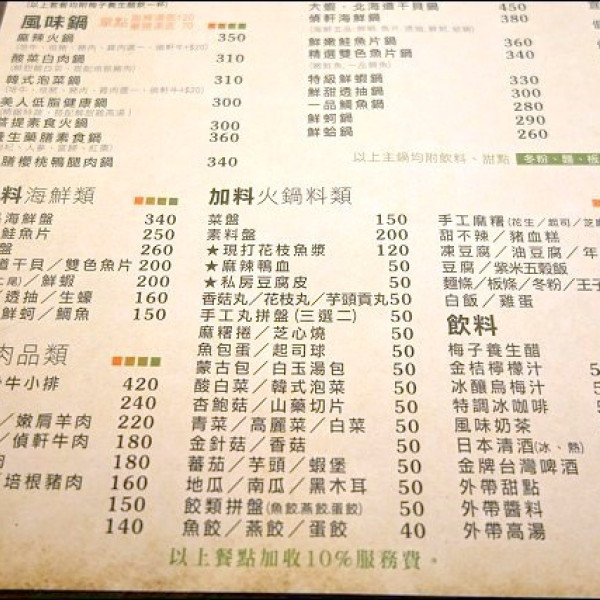 (以上套餐均附梅子養生醋飲一杯)
風味鍋 單點
麻辣火鍋 350
酸菜白肉鍋 310
韓式泡菜鍋 310
美人低脂健康鍋 300
菩提素食火鍋 300
養生藥膳素食鍋 360
膳櫻桃鴨腿肉鍋 340
大蝦、北海道干貝鍋 450
偵軒海鮮鍋 380
鮮嫩鮭魚片鍋 360
精選雙色魚片鍋 340
特級鮮蝦鍋 330
鮮甜透抽鍋 300
一品鯛魚鍋 280
鮮蚵鍋 290
鮮蛤鍋 260
以上主鍋均附飲料、甜點 冬粉、麵、板
料海鮮類
海鮮盤 340
鮭魚片 250
盤 260
道干貝/雙色魚片 200
尾)/鮮蝦 200
/透抽/生蠔 160
鮮蚵/鯛魚 150
肉品類
牛小排 420
240
/嫩肩羊肉 220
/偵軒牛肉 180
肉 180
/培根豬肉 160
150
140
加料火鍋料類
菜盤 150
素料盤 200
★現打花枝魚漿 120
★麻辣鴨血 50
★私房豆腐皮 50
香菇丸/花枝丸/芋頭貢丸 50
手工丸拼盤(三選二) 50
麻糬捲/芝心燒 50
魚包蛋/起司球 50
蒙古包/白玉湯包 50
酸白菜/韓式泡菜 50
杏鮑菇/山藥切片 50
青菜/高麗菜/白菜 50
金針菇/香菇 50
蕃茄/芋頭/蝦堡 50
地瓜/南瓜/黑木耳 50
餃類拼盤(魚餃,燕餃,蛋餃) 50
魚餃/燕餃/蛋餃 40
手工麻糬(花生/起司/芝麻
甜不辣/豬血糕
凍豆腐/油豆腐/年
豆腐/紫米五穀飯
麵條/板條/冬粉/王子
白飯/雞蛋
飲料
梅子養生醋
金桔檸檬汁
冰釀烏梅汁
特調冰咖啡
風味奶茶
日本清酒(冰、熱)
金牌台灣啤酒
外帶甜點
外帶醬料
外帶高湯
以上餐點加收10%服務費。